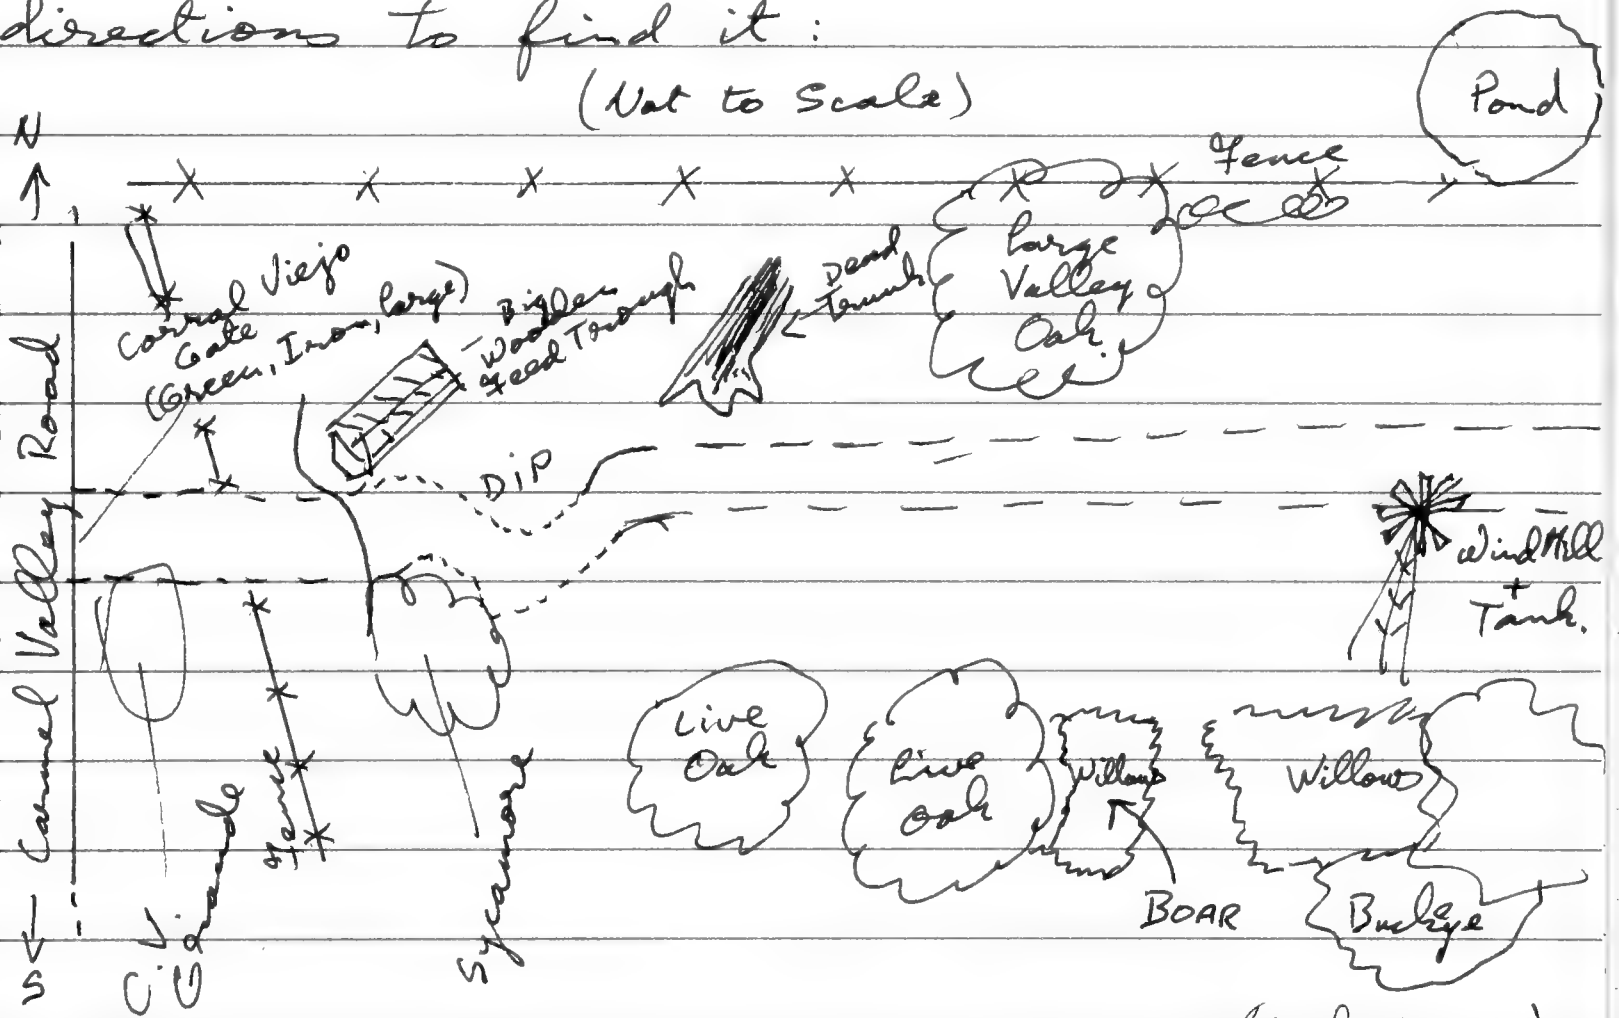 directions to find it :
(Not to Scale)
Pond
N
Fence
Corral Viejo
Gate
(Green, Iron, large)
Big
Wooden
Feed Trough
Dead
Trunk
Large
Valley
Oak.
Carmel Valley Road
DIP
WindMill
+
Tank.
Live
Oak
Live
Oak
Willows
Willows
Fence
Sycamore
BOAR
Buckeye
S